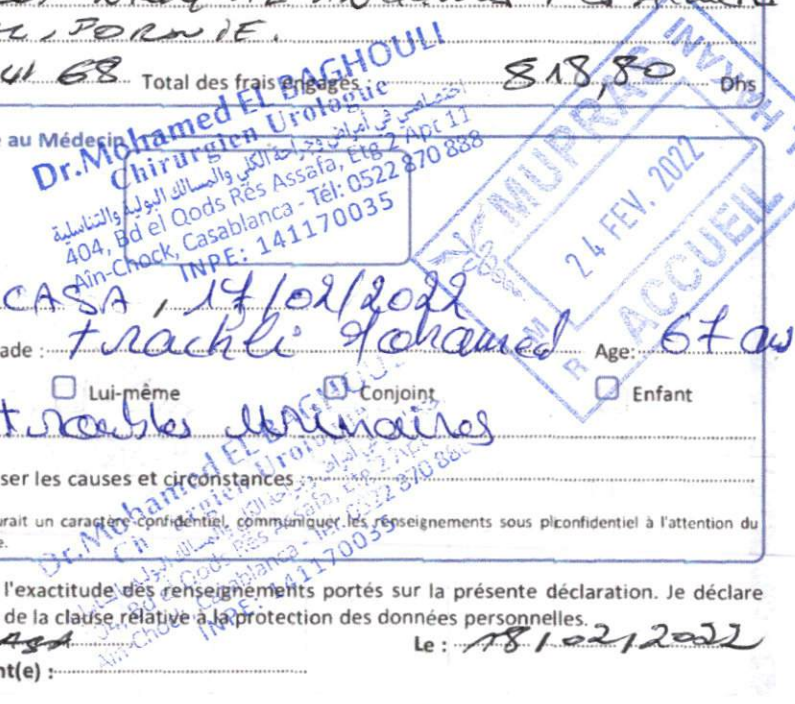 68 Total des frais engagés 818,80 Dhs
au Médecin
Dr.Mohamed EL BAGHOULI
Chirurgien Urologue
اختصاصي في أمراض وجراحة الكلي والمسالك البولية والتناسلية
404, Bd el Qods Rés Assafa, Etg 2 Apt 11
Aîn-Chock, Casablanca - Tél: 0522 870 888
INPE: 141170035
MUPRAS
24 FEV. 2022
ACCUEIL
CASA, 17/02/2022
ade : Mohamed Age: 67 ans
Lui-même Conjoint Enfant
troubles urinaires
ser les causes et circonstances :
urait un caractère confidentiel, communiquer les renseignements sous pliconfidentiel à l'attention du
e.
Dr.Mohamed EL BAGHOULI
Aîn-Chock, Casablanca - Tél: 0522 870 888
INPE: 141170035
l'exactitude des renseignements portés sur la présente déclaration. Je déclare
de la clause relative à la protection des données personnelles.
Le : 18/02/2022
nt(e) :